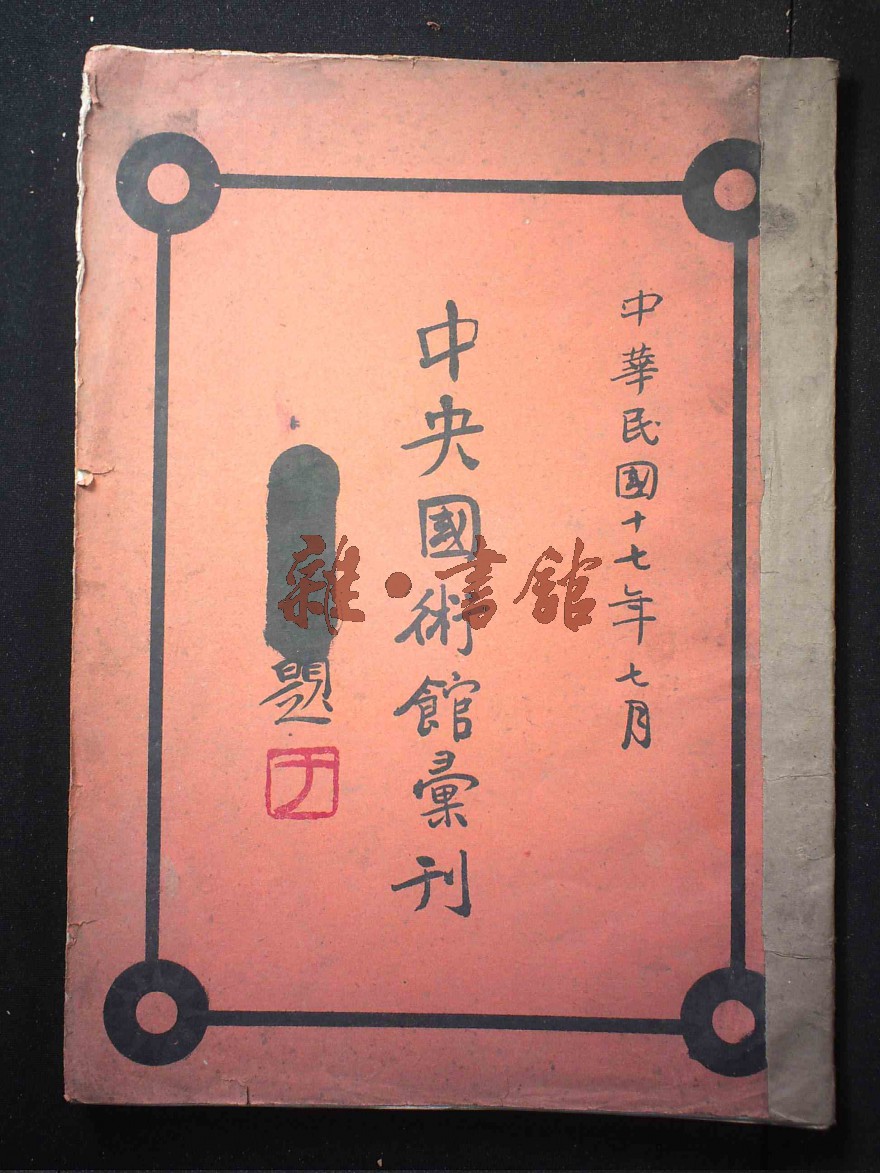 中華民國十七年七月
中央國術館彙刊
題
于
雜·書館